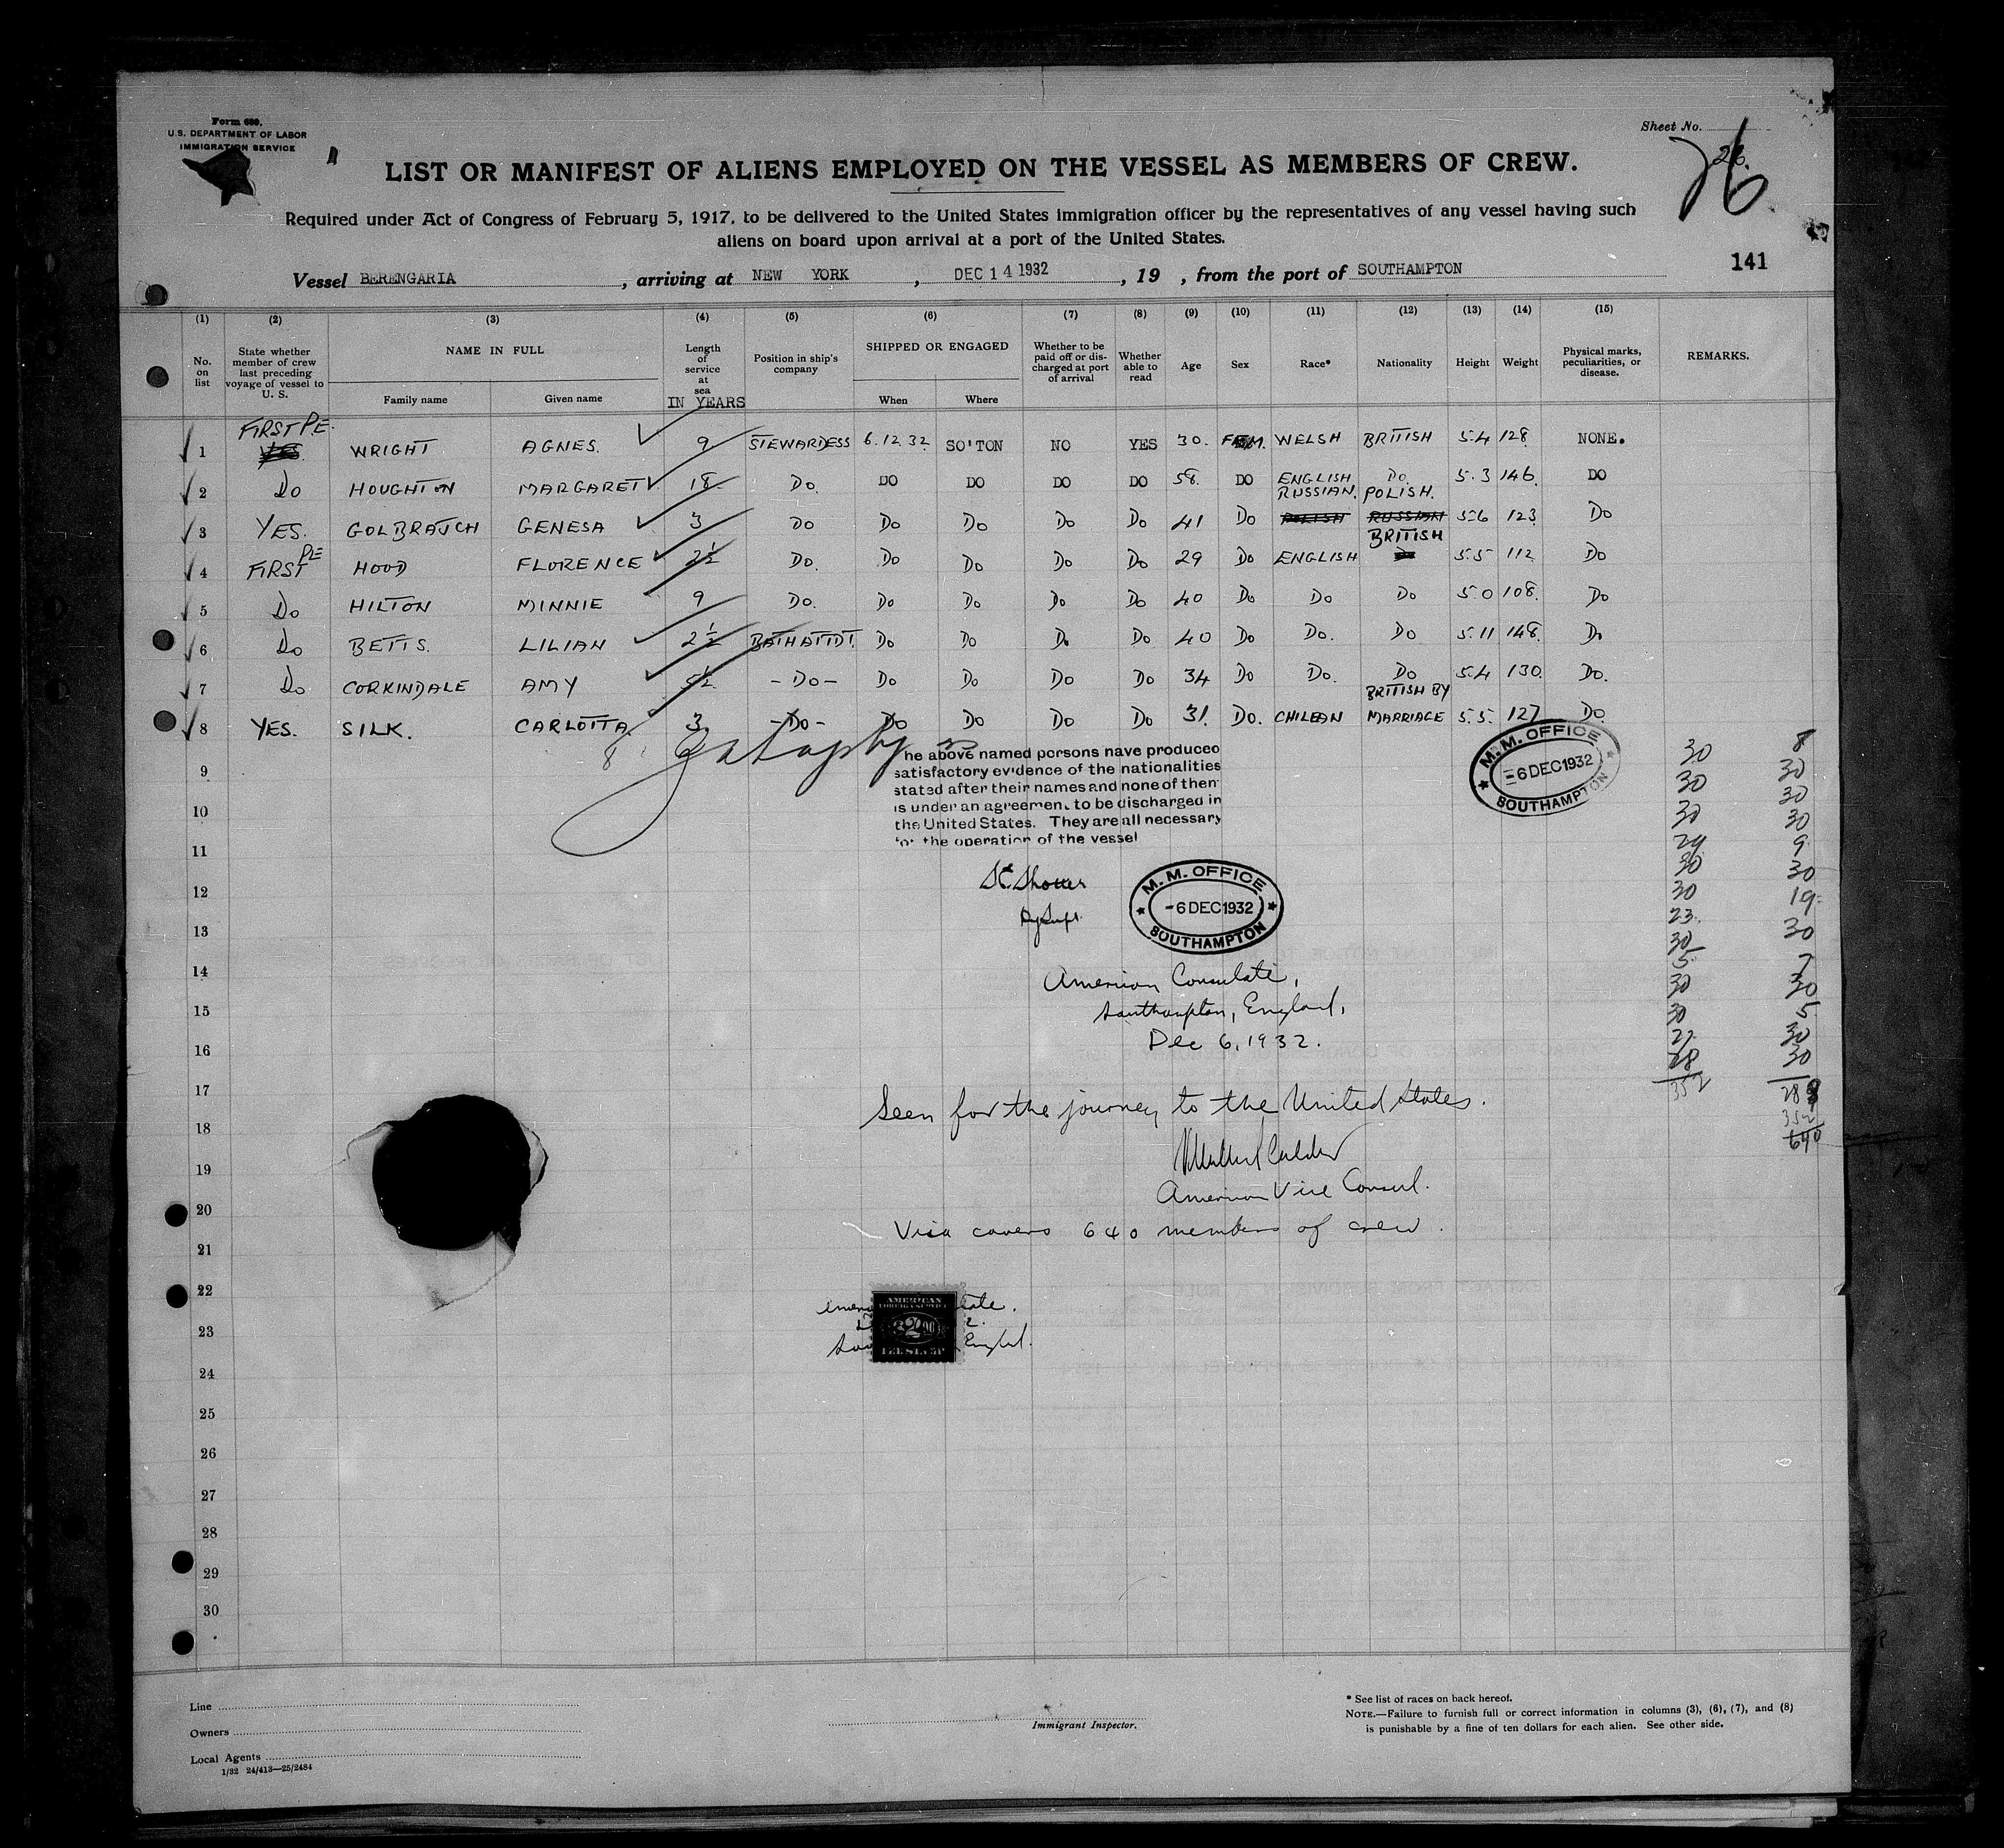 Form 689.
U.S. DEPARTMENT OF LABOR
IMMIGRATION SERVICE
Sheet No.
26.
26
LIST OR MANIFEST OF ALIENS EMPLOYED ON THE VESSEL AS MEMBERS OF CREW.
Required under Act of Congress of February 5, 1917, to be delivered to the United States immigration officer by the representatives of any vessel having such
aliens on board upon arrival at a port of the United States.
141
Vessel BERENGARIA, arriving at NEW YORK, DEC 14 1932, 19 , from the port of SOUTHAMPTON
(1) (2) (3) (4) (5) (6) (7) (8) (9) (10) (11) (12) (13) (14) (15)
No. on list State whether member of crew last preceding voyage of vessel to U. S. NAME IN FULL Family name Given name Length of service at sea IN YEARS Position in ship's company SHIPPED OR ENGAGED When Where Whether to be paid off or discharged at port of arrival Whether able to read Age Sex Race* Nationality Height Weight Physical marks, peculiarities, or disease. REMARKS.
1 FIRST P.E. YES WRIGHT AGNES. 9 STEWARDESS 6.12.32 SO'TON NO YES 30. FEM. WELSH BRITISH 5.4 128 NONE.
2 Do HOUGHTON MARGARET 18 Do. DO DO DO DO 58. DO ENGLISH Do. 5.3 146. DO
3 YES. GOLBRAJCH GENESA 3 Do Do Do Do Do 41 Do RUSSIAN. POLISH POLISH. RUSSIAN 5.6 123 Do
4 FIRST PE HOOD FLORENCE 2½ Do. Do Do Do Do 29 Do ENGLISH BRITISH Do 5.5 112 Do
5 Do HILTON MINNIE 9 Do. Do Do Do Do 40 Do Do Do 5.0 108. Do
6 Do BETTS. LILIAN 2½ BATHATTDT. Do Do Do Do 40 Do Do. Do 5.11 148. Do
7 Do CORKINDALE AMY 5½ -Do- Do Do Do Do 34 Do Do. Do 5.4 130. Do.
8 YES. SILK. CARLOTTA 3 -Do- Do Do Do Do 31. Do. CHILEAN BRITISH BY MARRIAGE 5.5. 127 Do
8
The above named persons have produced
satisfactory evidence of the nationalities
stated after their names and none of them
is under an agreement to be discharged in
the United States. They are all necessary
for the operation of the vessel
M. M. OFFICE
-6 DEC 1932
SOUTHAMPTON
Dy Supt.
M. M. OFFICE
-6 DEC 1932
SOUTHAMPTON
American Consulate,
Southampton, England,
Dec 6, 1932.
Seen for the journey to the United States.
American Vice Consul.
Visa covers 640 members of crew.
AMERICAN
FOREIGN SERVICE
$2.00
FEE STAMP
Engld.
30 8
30 30
30 30
29 30
30 9
30 30
23. 19
30 30
5 7
30 30
30 5
27 30
28 30
352 288
352
640
9
10
11
12
13
14
15
16
17
18
19
20
21
22
23
24
25
26
27
28
29
30
Line
Owners
Local Agents
1/32 24/413—25/2484
Immigrant Inspector.
* See list of races on back hereof.
NOTE.—Failure to furnish full or correct information in columns (3), (6), (7), and (8)
is punishable by a fine of ten dollars for each alien. See other side.